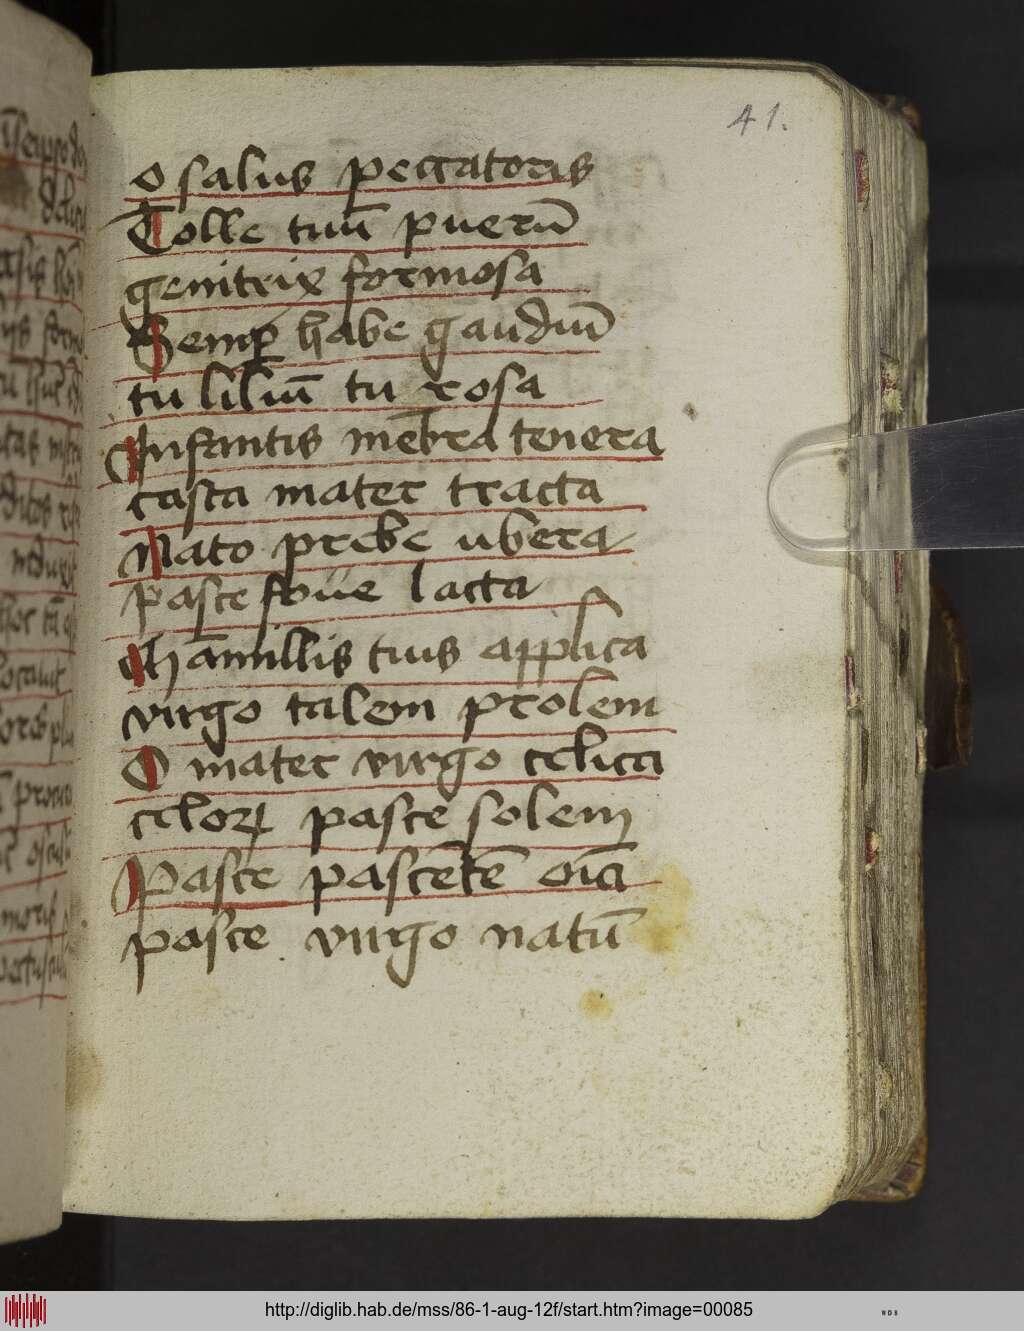 41.
o salus peccatoris
Tolle tuū puerū
genitrix formosa
Semꝑ habe gaudiū
tu liliū tu rosa
Infantis mēbra tenera
casta mater tracta
Nato prebe ubera
pasce foue lacta
Mamillis tuis applica
virgo talem prolem
O mater virgo celica
celoꝝ pasce solem
Pasce pascētē oīa
pasce virgo natū
http://diglib.hab.de/mss/86-1-aug-12f/start.htm?image=00085